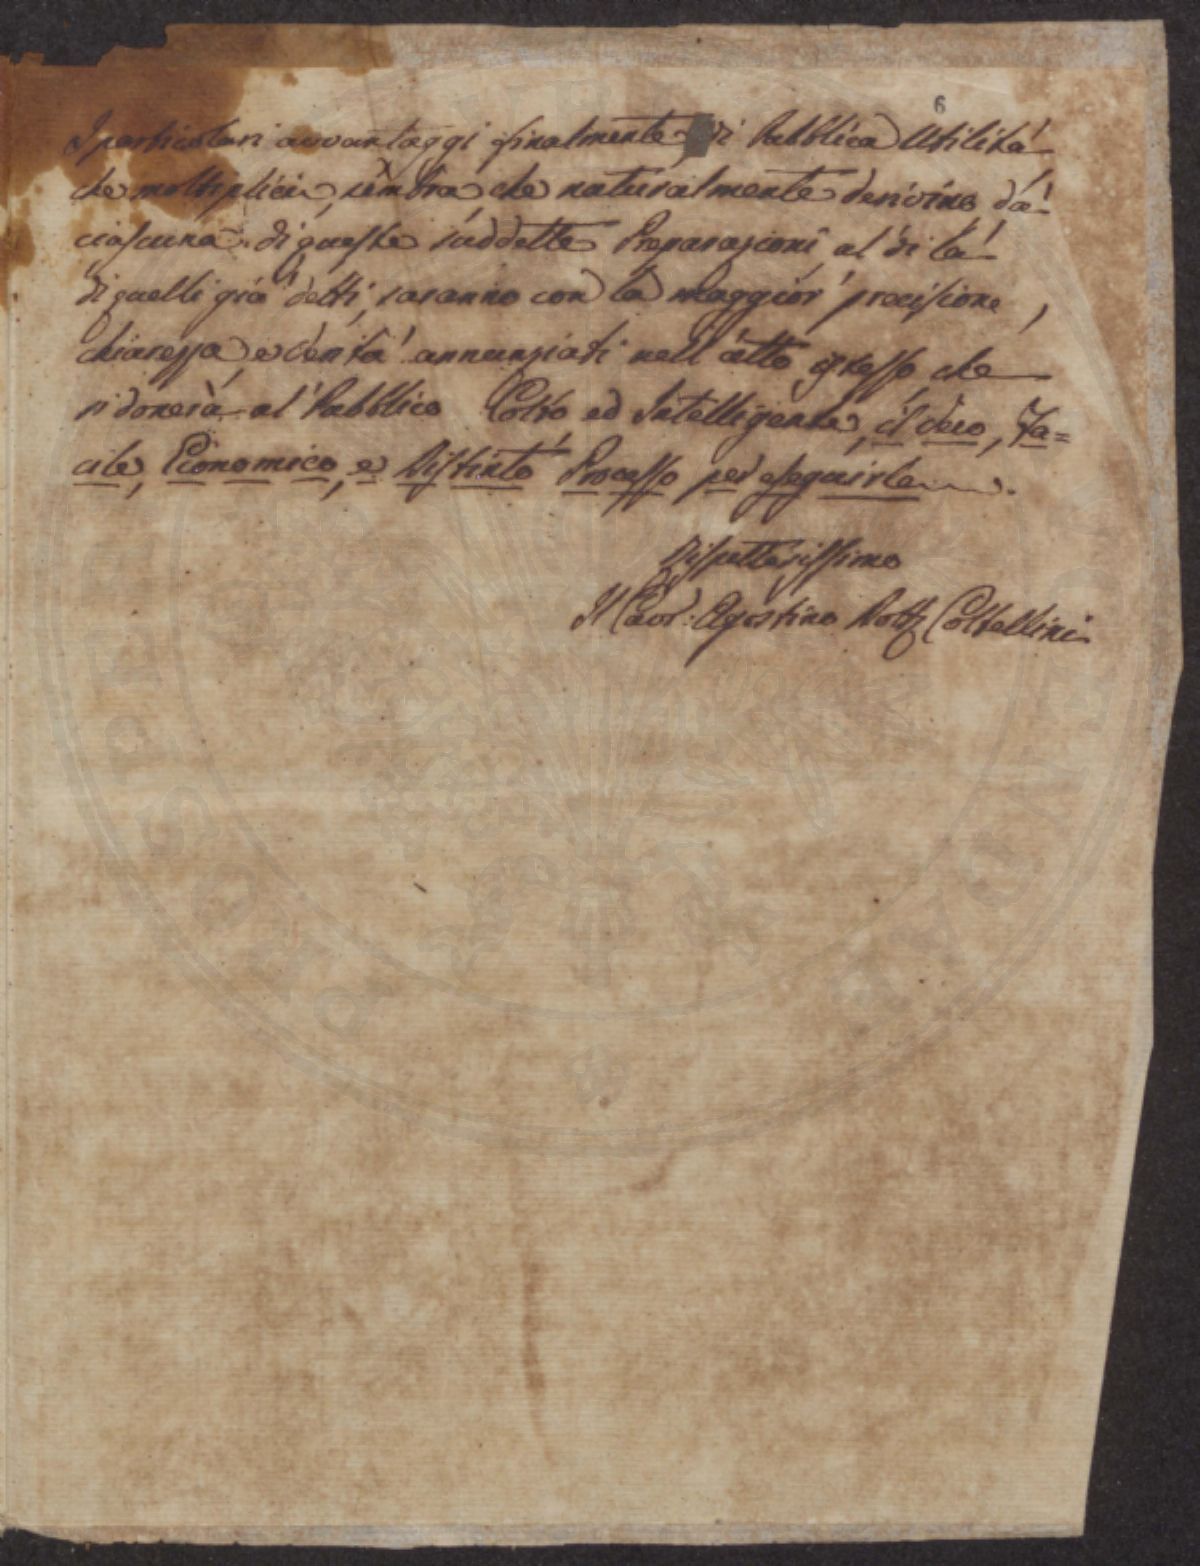 6
I particolari avvantaggi finalmente, di Pubblica Utilitá
che moltiplici, sembra che naturalmente derivino dá
ciascuna di queste suddette Preparazioni al di lá
di quelli giá detti, saranno con la maggior precisione,
chiarezza, e veritá annunziati nell'atto istesso, che
si donerà al Pubblico Colto ed Intelligente, il vero, Fa=
cile, Economico, e Distinto Processo per eseguirle.
Rispettosissimo
Il Cavr: Agostino Coltellini